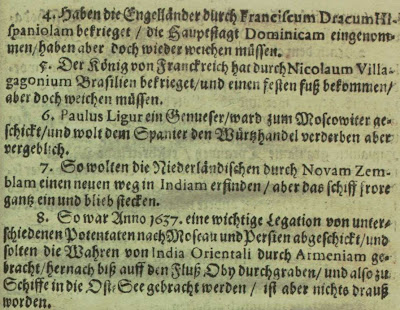 4. Haben die Engelländer durch Franciscum Dracum Hi-
spaniolam bekrieget / die Hauptstagt Dominicam eingenom-
men / haben aber doch wieder weichen müssen.
5. Der König von Franckreich hat durch Nicolaum Villa-
gagonium Brasilien bekrieget / und einen festen fuß bekommen /
aber doch weichen müssen.
6. Paulus Ligur ein Genueser / ward zum Moscowiter ge-
schickt / und wolt dem Spanier den Würtzhandel verderben aber
vergeblich.
7. So wolten die Niederländischen durch Novam Zem-
blam einen neuen weg in Indiam erfinden / aber das schiff frore
gantz ein und blieb stecken.
8. So war Anno 1637. eine wichtige Legation von unter-
schiedenen Potentaten nach Moscau und Persien abgeschickt / und
solten die Wahren von India Orientali durch Armeniam ge-
bracht / hernach biß auff den Fluß Oby durchgraben / und also zu
Schiffe in die Ost-See gebracht werden / ist aber nichts drauß
worden.